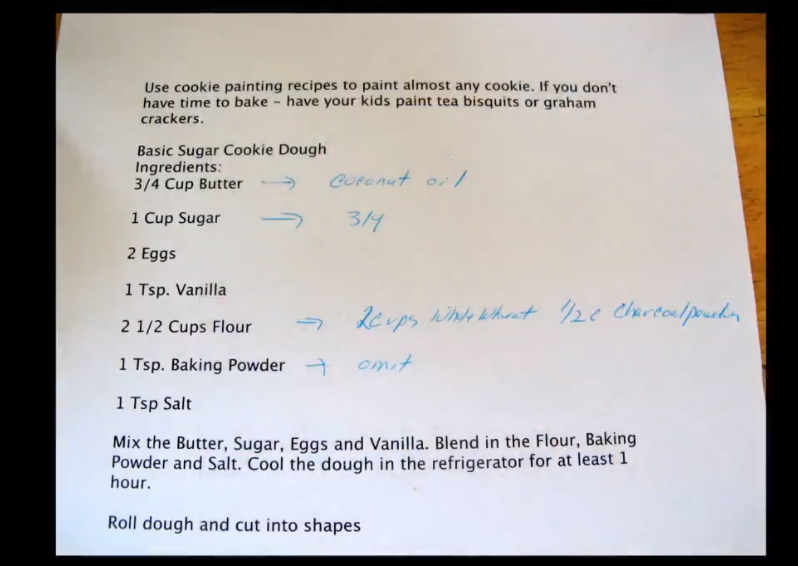 Use cookie painting recipes to paint almost any cookie. If you don't
have time to bake – have your kids paint tea bisquits or graham
crackers.
Basic Sugar Cookie Dough
Ingredients:
3/4 Cup Butter → Coconut oil
1 Cup Sugar → 3/4
2 Eggs
1 Tsp. Vanilla
2 1/2 Cups Flour → 2 cups Whole Wheat 1/2 c Charcoal powder
1 Tsp. Baking Powder → omit
1 Tsp Salt
Mix the Butter, Sugar, Eggs and Vanilla. Blend in the Flour, Baking
Powder and Salt. Cool the dough in the refrigerator for at least 1
hour.
Roll dough and cut into shapes